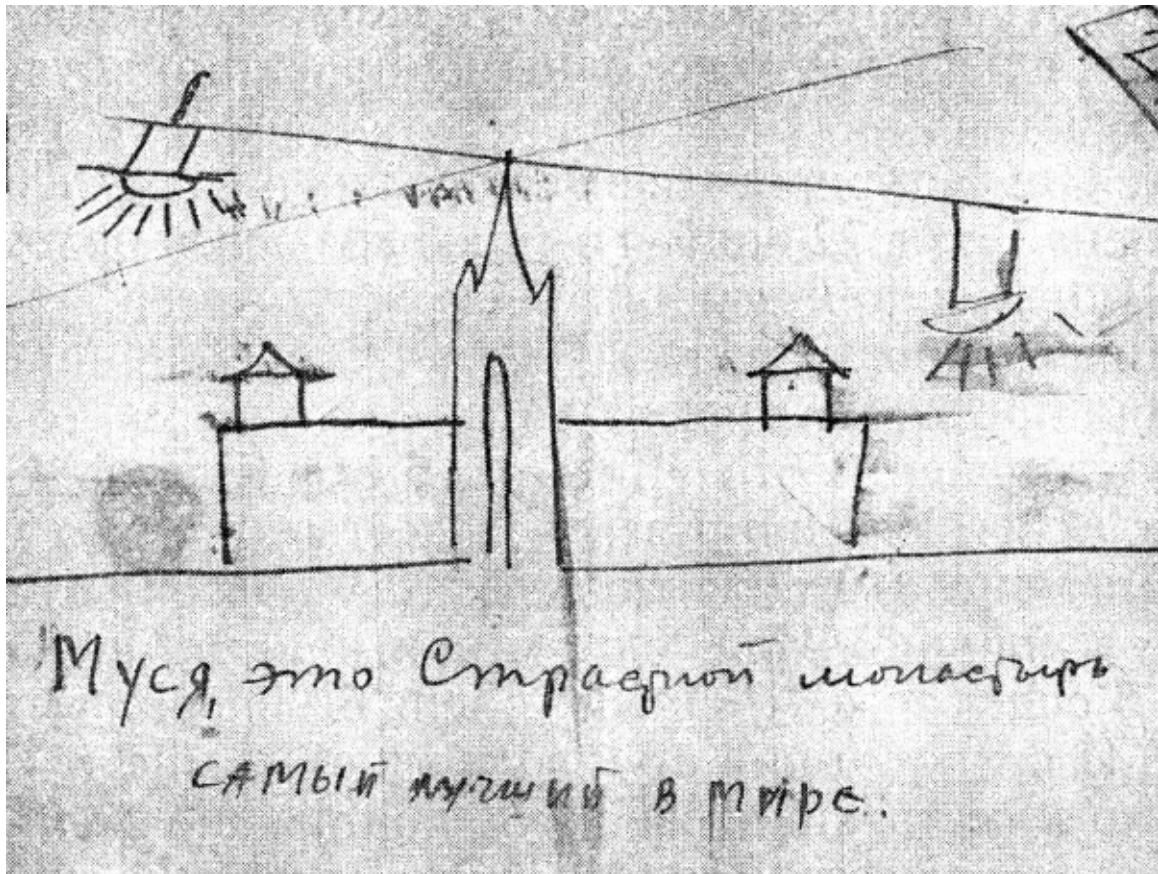 Муся, это Страстной монастырь
самый лучший в мире.